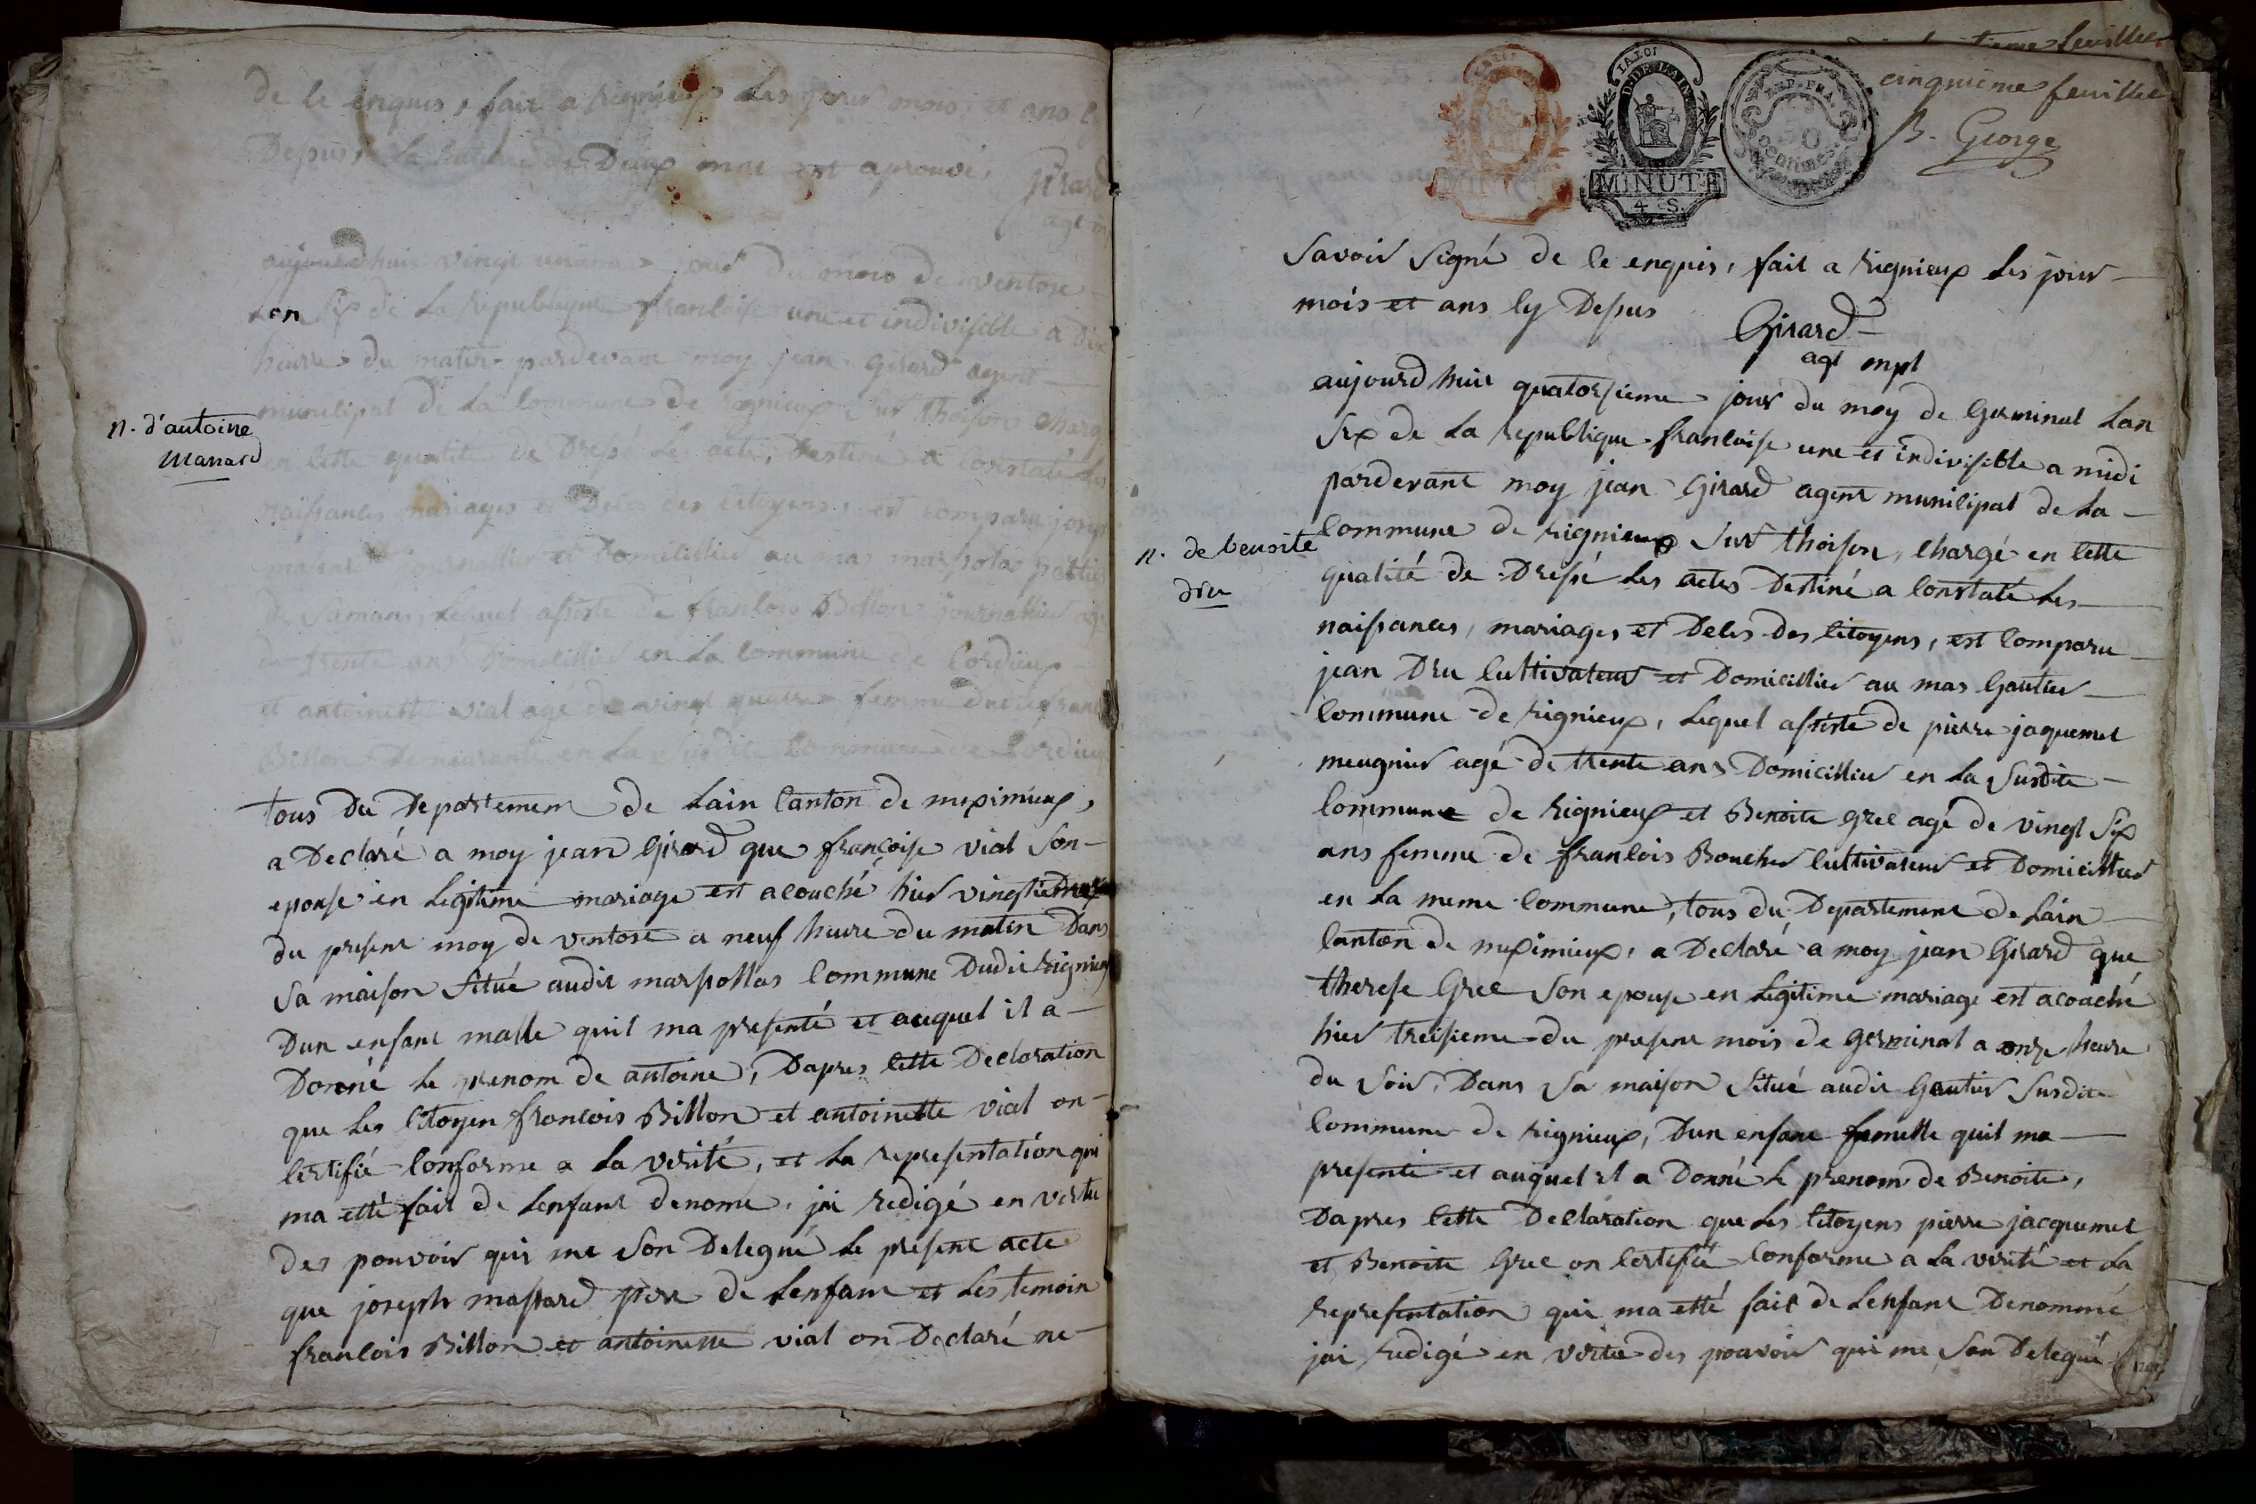 de le enquis, fait a rignieux Les jour mois et ans
Depuis La rature de Deux mot est aprouvé
Girard
aujourdhuis vingt unieme jour du mois de ventose
Lan Six de La Republique francoise une et indivisible a dix
heure du matin pardevant moy jean Girard agent
municipal de La commune de rignieux sur thoison chargé
en cette qualité de Dresé Les acte, Destiné a constaté Les
naissances mariages et Deces des citoyens, est comparu joseph
journallier et Domicillier au mas marpolas
lequel assisté de francois Billon journallier
de trente ans Domicillier en La Commune de Cordieux
et antoinette vial agé de vingt quatre femme dudit francois
Billon Demeurante en La susdite Commune de Cordieux
n. d'antoine
Massard
tous Du Departement de Lain Canton de meximieux,
a Declaré a moy jean Girard que françoise vial Son
epouse en Legitime mariage est acouché hier vingtieme
du present moy de ventose a neuf heure du matin Dans
Sa maison Situé audit marpollas Commune Dudit Rignieux
Dun enfant malle quil ma presenté et auquel il a
Donné Le prenom de antoine, Dapres cette Declaration
que Les Citoyen francois Billon et antoinette vial on
certifié conforme a La verité, et La representation qui
ma etté fait de Lenfant denomé, jai redigé en vertu
des pouvoir qui me son Delegué Le present acte
que joseph massard pere de Lenfant et Les temoin
francois Billon et antoinette vial on Declaré ne
cinquieme feuillet
B. George
LA LOI
MINUTE
4 S.
50
centimes
Savoir Signé de le enquis, fait a rignieux Les jour
mois et ans cy Depus
Girard
agt mpl
aujourdhuit quatorsieme jour du moy de Germinal Lan
Six de La Republique francoise une et indivisible a midi
pardevant moy jean Girard agent municipal de La
Commune de rignieux Sur thoison, chargé en cette
qualité de Dresé Les actes Destiné a constaté Les
naissances, mariages et Deces des citoyens, est comparu
jean Dru cultivateur et Domicillier au mas Gautier
commune de rignieux, Lequel assisté de pierre jaquemet
meugnier agé de trente ans Domicillier en La Susdite
commune de Rignieux et Benoite Grec agé de vingt Six
ans femme de francois Boucher cultivateur et Domicillier
en La meme commune, tous du Departement de Lain
canton de meximieux, a Declaré a moy jean Girard que
therese Grec Son epouse en Legitime mariage est acouché
hier treisieme du present mois de germinal a onze heure
du Soir, Dans Sa maison Situé audit Gautier Susdite
commune de rignieux, Dun enfant femelle quil ma
presenté et auquel il a Donné le prenom de Benoite,
Dapres cette Declaration que Les citoyens pierre jacquemet
et Benoite Grec on certifié conforme a La verité et La
representation qui ma etté fait de Lenfant Denommé
jai redigé en vertu des pouvoir qui me son Delegué
n. de benoite
dru